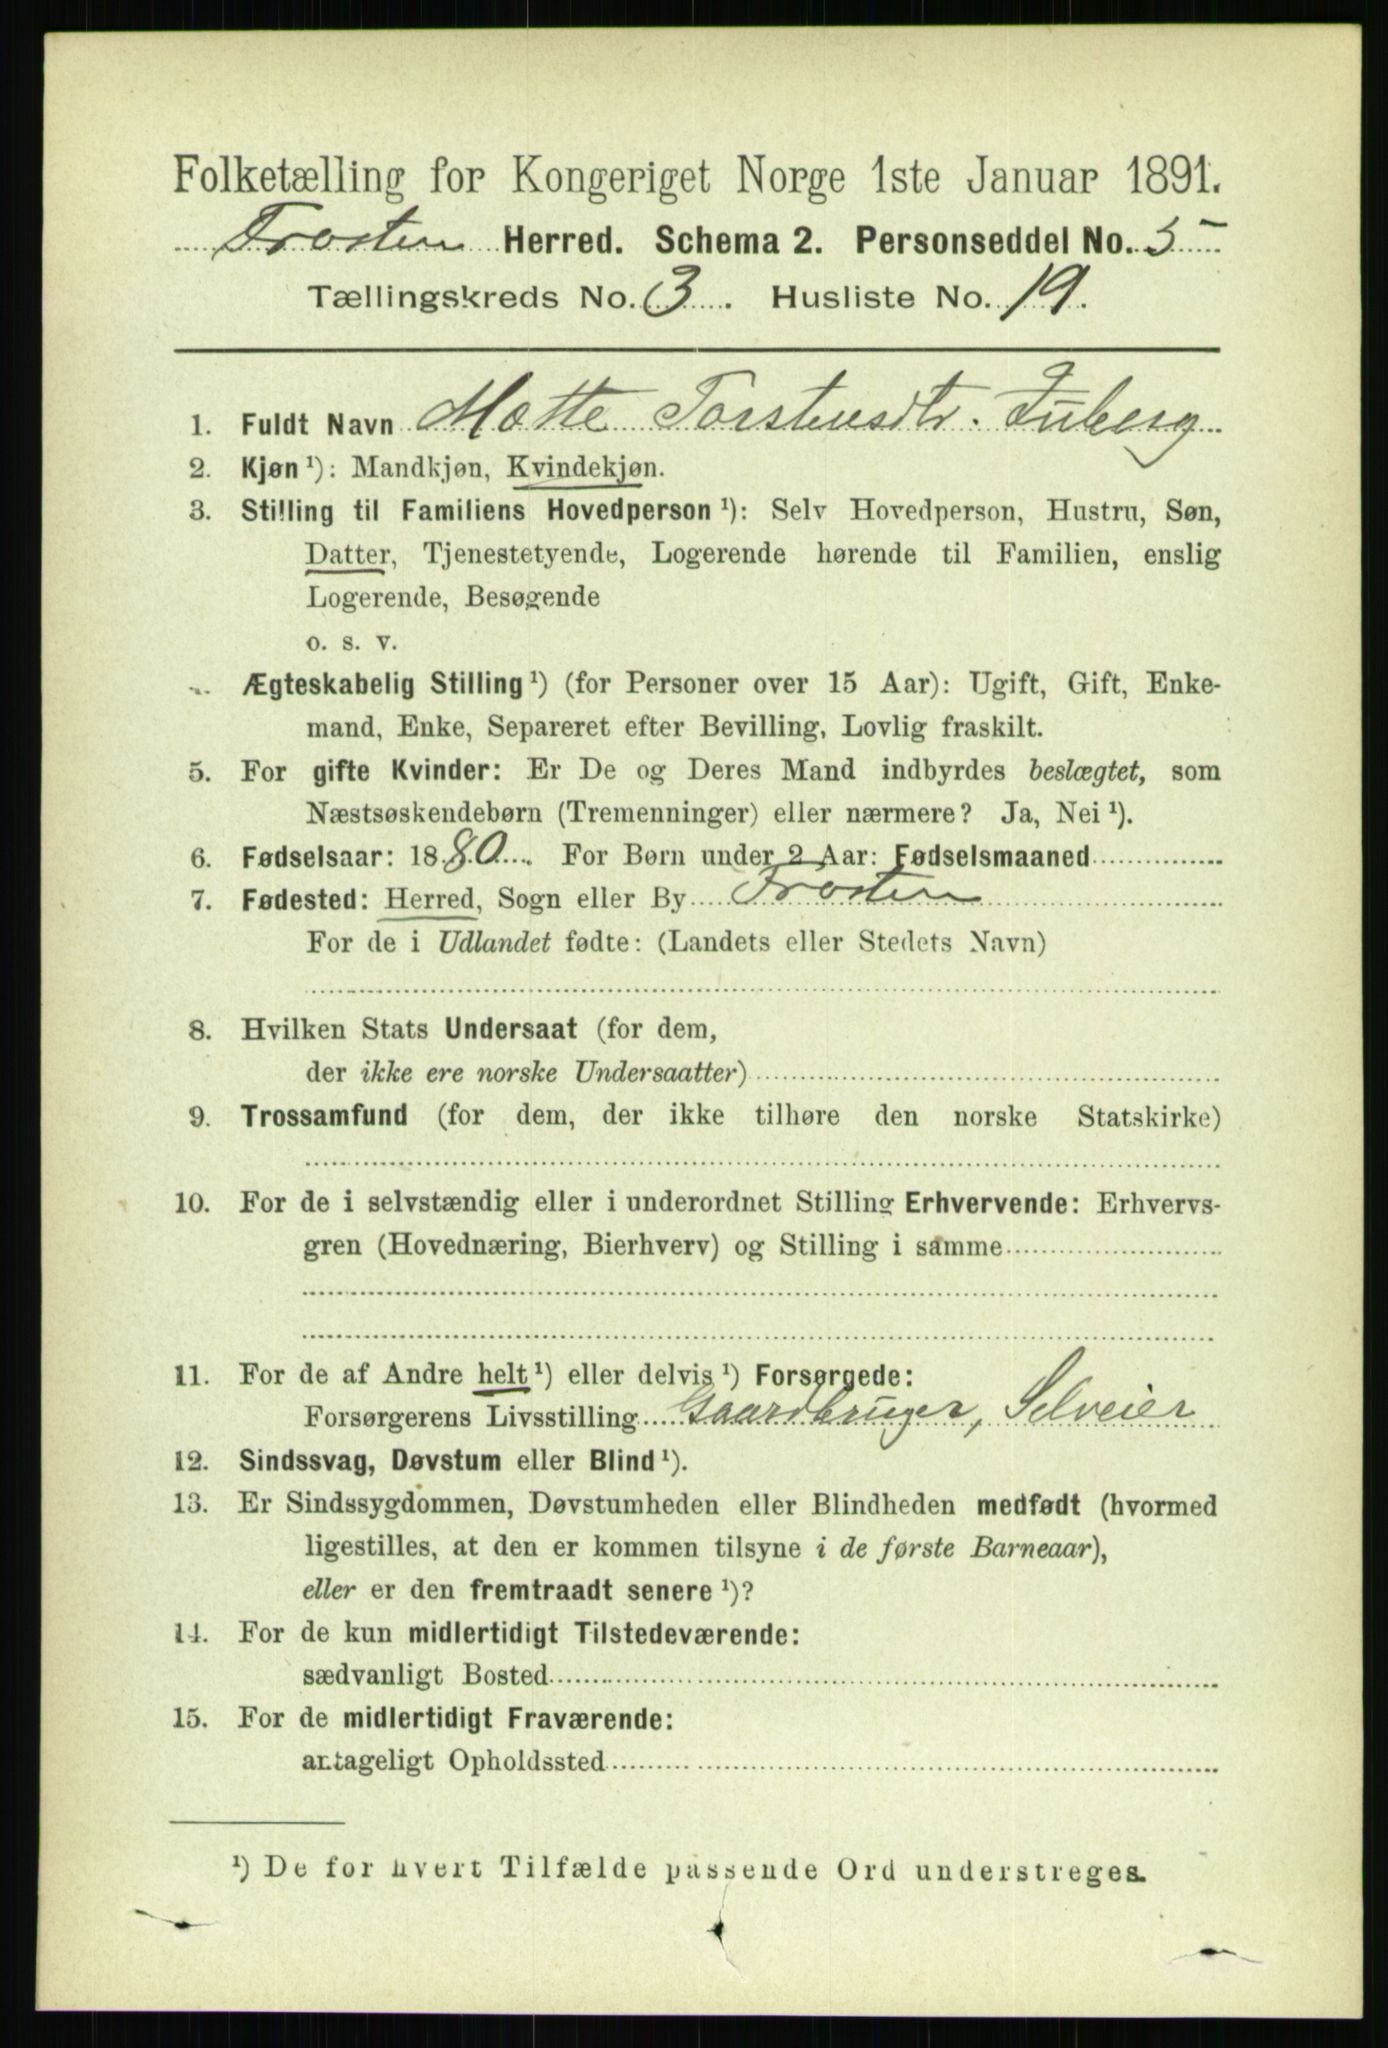 Folketælling for Kongeriget Norge 1ste Januar 1891.
Frosten Herred. Schema 2. Personseddel No. 5
Tællingskreds No. 3. Husliste No. 19.
1. Fuldt Navn Mette Torstensdtr. Juberg
2. Kjøn ¹): Mandkjøn, Kvindekjøn.
3. Stilling til Familiens Hovedperson ¹): Selv Hovedperson, Hustru, Søn,
Datter, Tjenestetyende, Logerende hørende til Familien, enslig
Logerende, Besøgende
o. s. v.
Ægteskabelig Stilling ¹) (for Personer over 15 Aar): Ugift, Gift, Enke-
mand, Enke, Separeret efter Bevilling, Lovlig fraskilt.
5. For gifte Kvinder: Er De og Deres Mand indbyrdes beslægtet, som
Næstsøskendebørn (Tremenninger) eller nærmere? Ja, Nei ¹).
6. Fødselsaar: 1880. For Børn under 2 Aar: Fødselsmaaned
7. Fødested: Herred, Sogn eller By Frosten
For de i Udlandet fødte: (Landets eller Stedets Navn)
8. Hvilken Stats Undersaat (for dem,
der ikke ere norske Undersaatter)
9. Trossamfund (for dem, der ikke tilhøre den norske Statskirke)
10. For de i selvstændig eller i underordnet Stilling Erhvervende: Erhvervs-
gren (Hovednæring, Bierhverv) og Stilling i samme
11. For de af Andre helt ¹) eller delvis ¹) Forsørgede:
Forsørgerens Livsstilling Gaardbruger, Selveier
12. Sindssvag, Døvstum eller Blind ¹).
13. Er Sindssygdommen, Døvstumheden eller Blindheden medfødt (hvormed
ligestilles, at den er kommen tilsyne i de første Barneaar),
eller er den fremtraadt senere ¹)?
14. For de kun midlertidigt Tilstedeværende:
sædvanligt Bosted
15. For de midlertidigt Fraværende:
antageligt Opholdssted
¹) De for hvert Tilfælde passende Ord understreges.